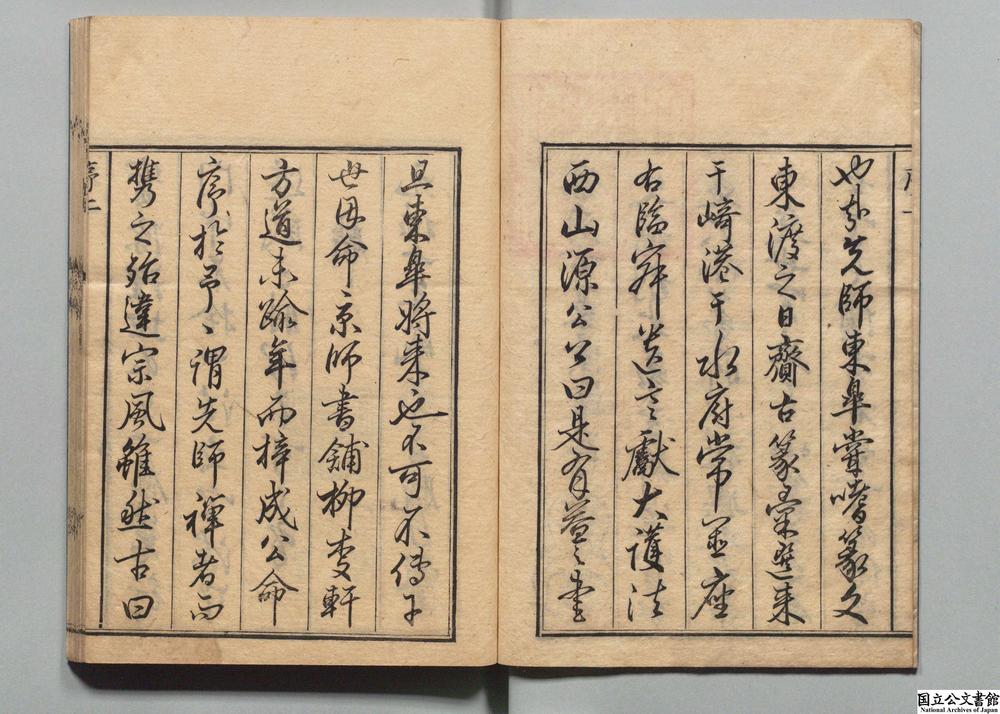 也哉先師東皐嘗嗜篆文
東渡之日齎古篆彙選来
于崎港于水府常置座
右臨寂遺言献大護法
西山源公公曰是有益之書
且東皐将来也不可不傳于
世因命京師書鋪柳枝軒
方道未踰年而梓成公命
序於予〻謂先師禅者而
携之殆違宗風雖然古曰
序二
国立公文書館
National Archives of Japan